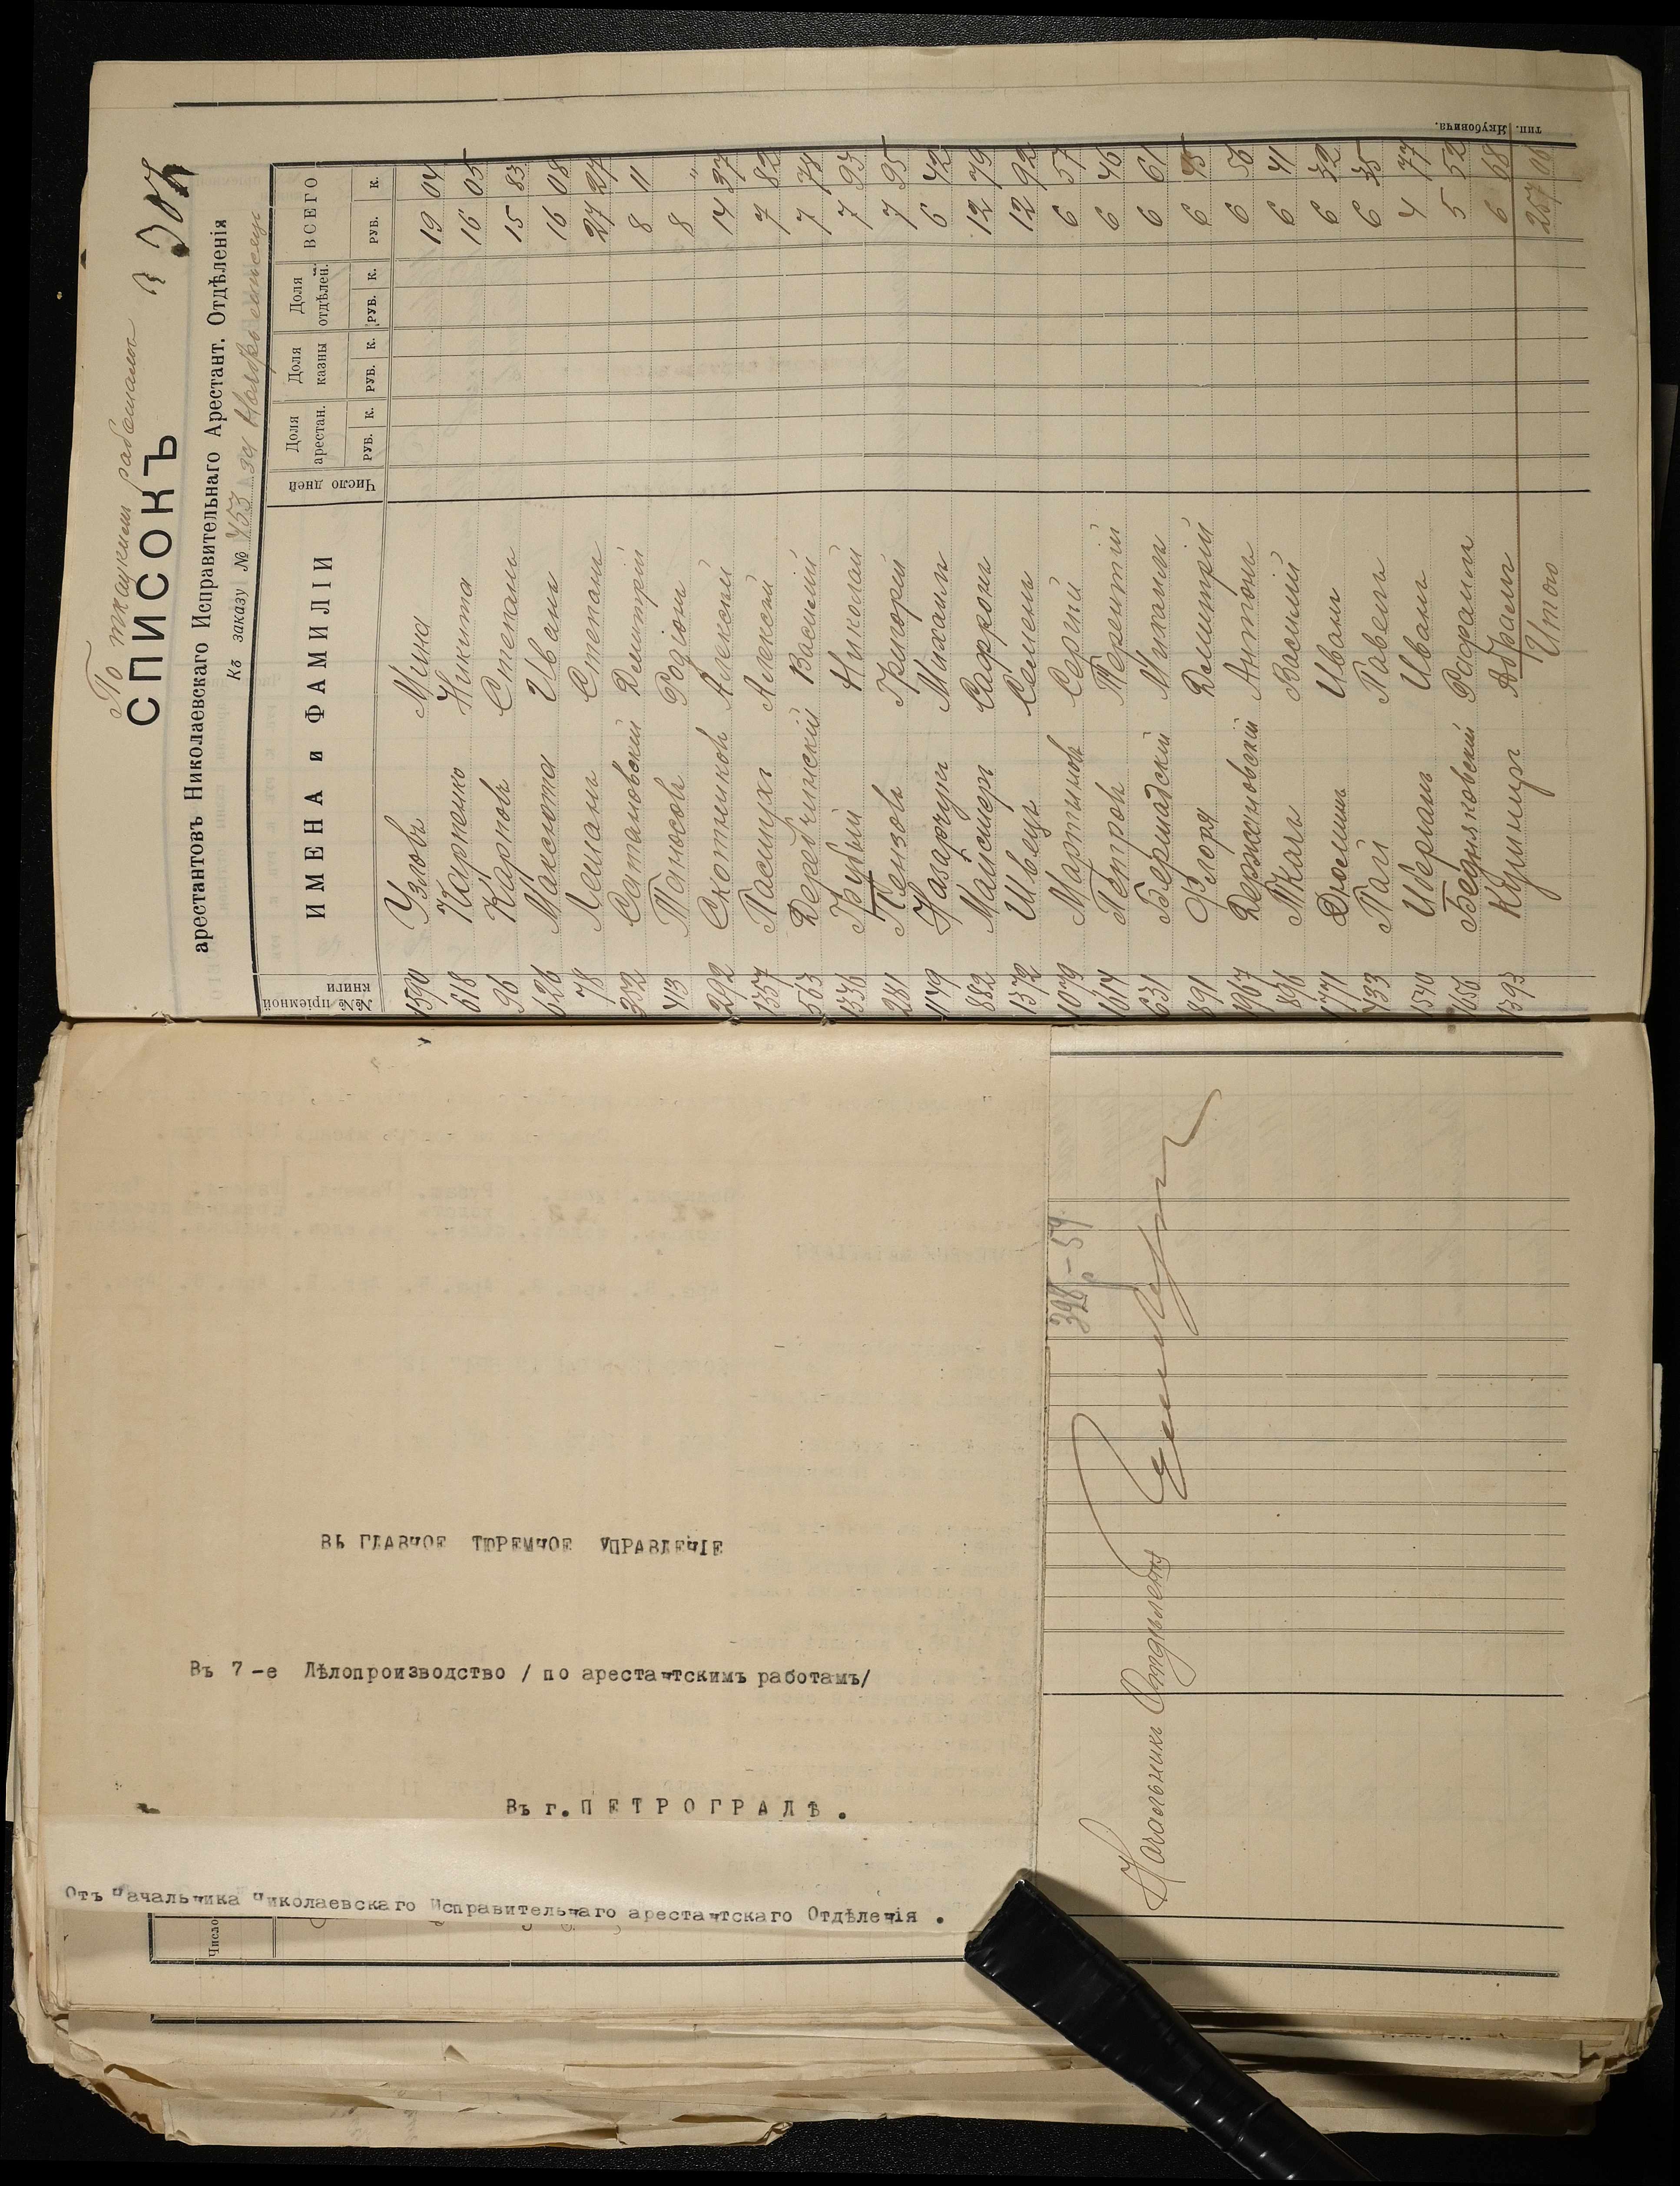 По ткацким работам
З 307
СПИСОКЪ
арестантовъ Николаевскаго Исправительнаго Арестант. Отдѣленія
Къ заказу № 753 за Ноябрь месяц
№№ пріемной книги ИМЕНА и ФАМИЛІИ Число дней Доля арестан. Доля казны Доля отдѣлен. ВСЕГО
РУБ. К. РУБ. К. РУБ. К. РУБ. К.
1590 Узловъ Мина 19 04
618 Карпенко Никита 16 05
96 Карповъ Степанъ 15 83
626 Максюта Иванъ 16 08
78 Леманъ Степанъ 27 27
352 Сатановскій Дмитрій 8 11
413 Таносовъ Родіонъ 8 "
292 Скотниковъ Алексѣй 14 37
1357 Пасмухъ Алексѣй 7 82
563 Деребчинскій Василій 7 78
1336 Грубый Николай 7 93
281 Пензовъ Григорій 7 95
1149 Назарчукъ Михаилъ 6 42
882 Майснеръ Сафронъ 12 79
1372 Швецъ Семенъ 12 92
1079 Мартыновъ Сергѣй 6 57
1614 Петровъ Терентій 6 46
631 Бершадскій Михаилъ 6 61
891 Флоря Дмитрій 6 45
1967 Держановскій Антонъ 6 56
896 Ткачъ Василій 6 41
1771 Дюминъ Иванъ 6 32
433 Пай Павелъ 6 35
1540 Иберамъ Иванъ 4 77
1656 Бедняковскій Рафаилъ 5 52
1393 Кушниръ Абрамъ 6 68
Итого 257 06
тип. Якубовича.
ВЪ ГЛАВНОЕ ТЮРЕМНОЕ УПРАВЛЕНІЕ
Въ 7-е Дѣлопроизводство / по арестантскимъ работамъ/
Въ г. ПЕТРОГРАДѢ.
Отъ Начальника Николаевскаго Исправительнаго арестантскаго Отдѣленія .
Число
398р-59
Начальникъ Отдѣленія